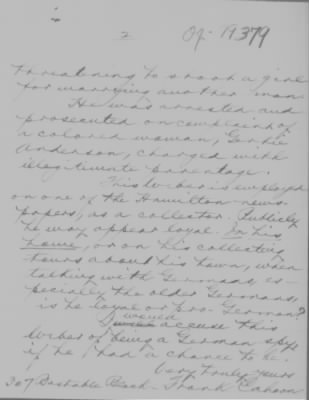 2
Og-19379
threatening to shoot a girl
for marrying another man.
He was arrested and
prosecuted on complaint of
a colored woman, Gertie
Anderson, charged with
illegitimate parentage.
This Weber is employed
on one of the Hamilton news-
papers, as a collector. Publicly
he may appear loyal. In his
home, or on his collecting
hours about his town, when
talking with Germans, es-
pecially the older Germans,
is he loyal or pro-German?
I would accuse this
Weber of being a German spy
if he had a chance to be.
Very truly yours
307 Bastable Block - Frank Cahoon